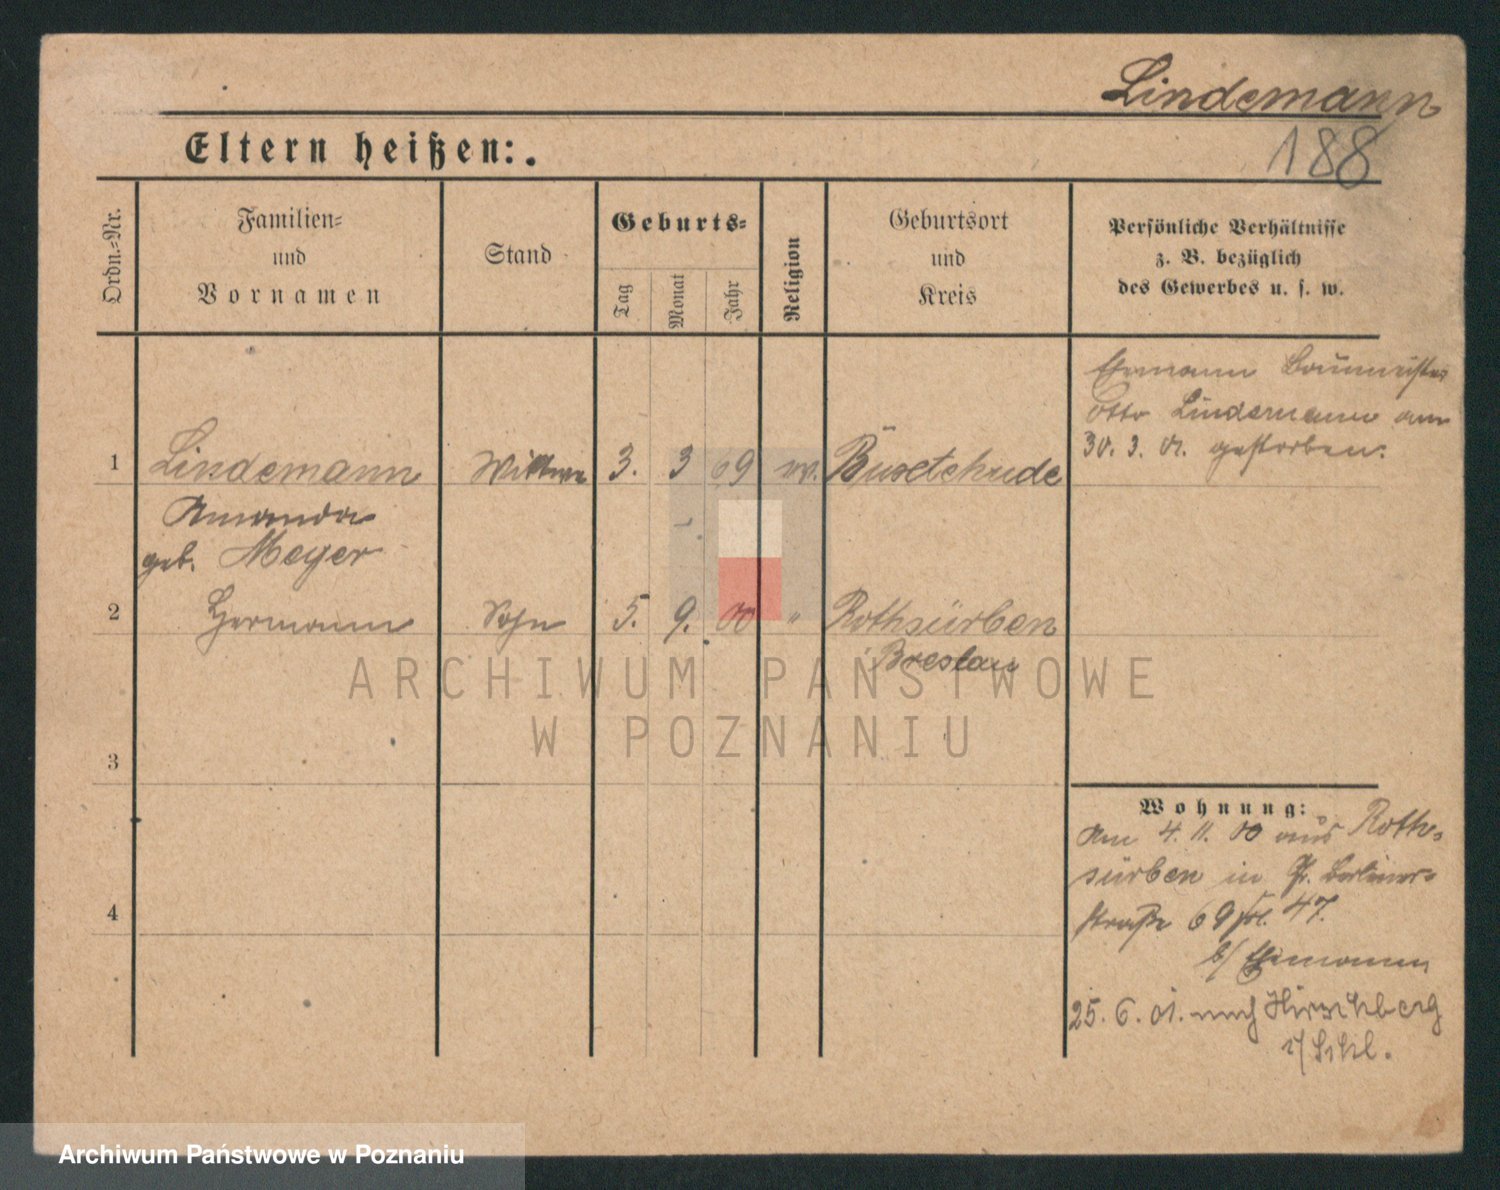 Lindemann
188
Eltern heißen:
Ordn.-Nr.
Familien-
und
Vornamen
Stand
Geburts-
Tag
Monat
Jahr
Religion
Geburtsort
und
Kreis
Persönliche Verhältnisse
z. B. bezüglich
des Gewerbes u. s. w.
Ehemann Baumeister
Otto Lindemann am
30. 3. 01. gestorben.
1 Lindemann Wittwe 3. 3 69 Buxtehude
Amanda
geb. Meyer
2 Hermann Sohn 5. 9. 00 " Rothsürben
Breslau
3
4
Wohnung:
Am 4. 11. 00 aus Roth-
sürben in Berliner-
straße 69
b/ Ehemann
25. 6. 01. nach Hirschberg
i/Schl.
ARCHIWUM PAŃSTWOWE
W POZNANIU
Archiwum Państwowe w Poznaniu